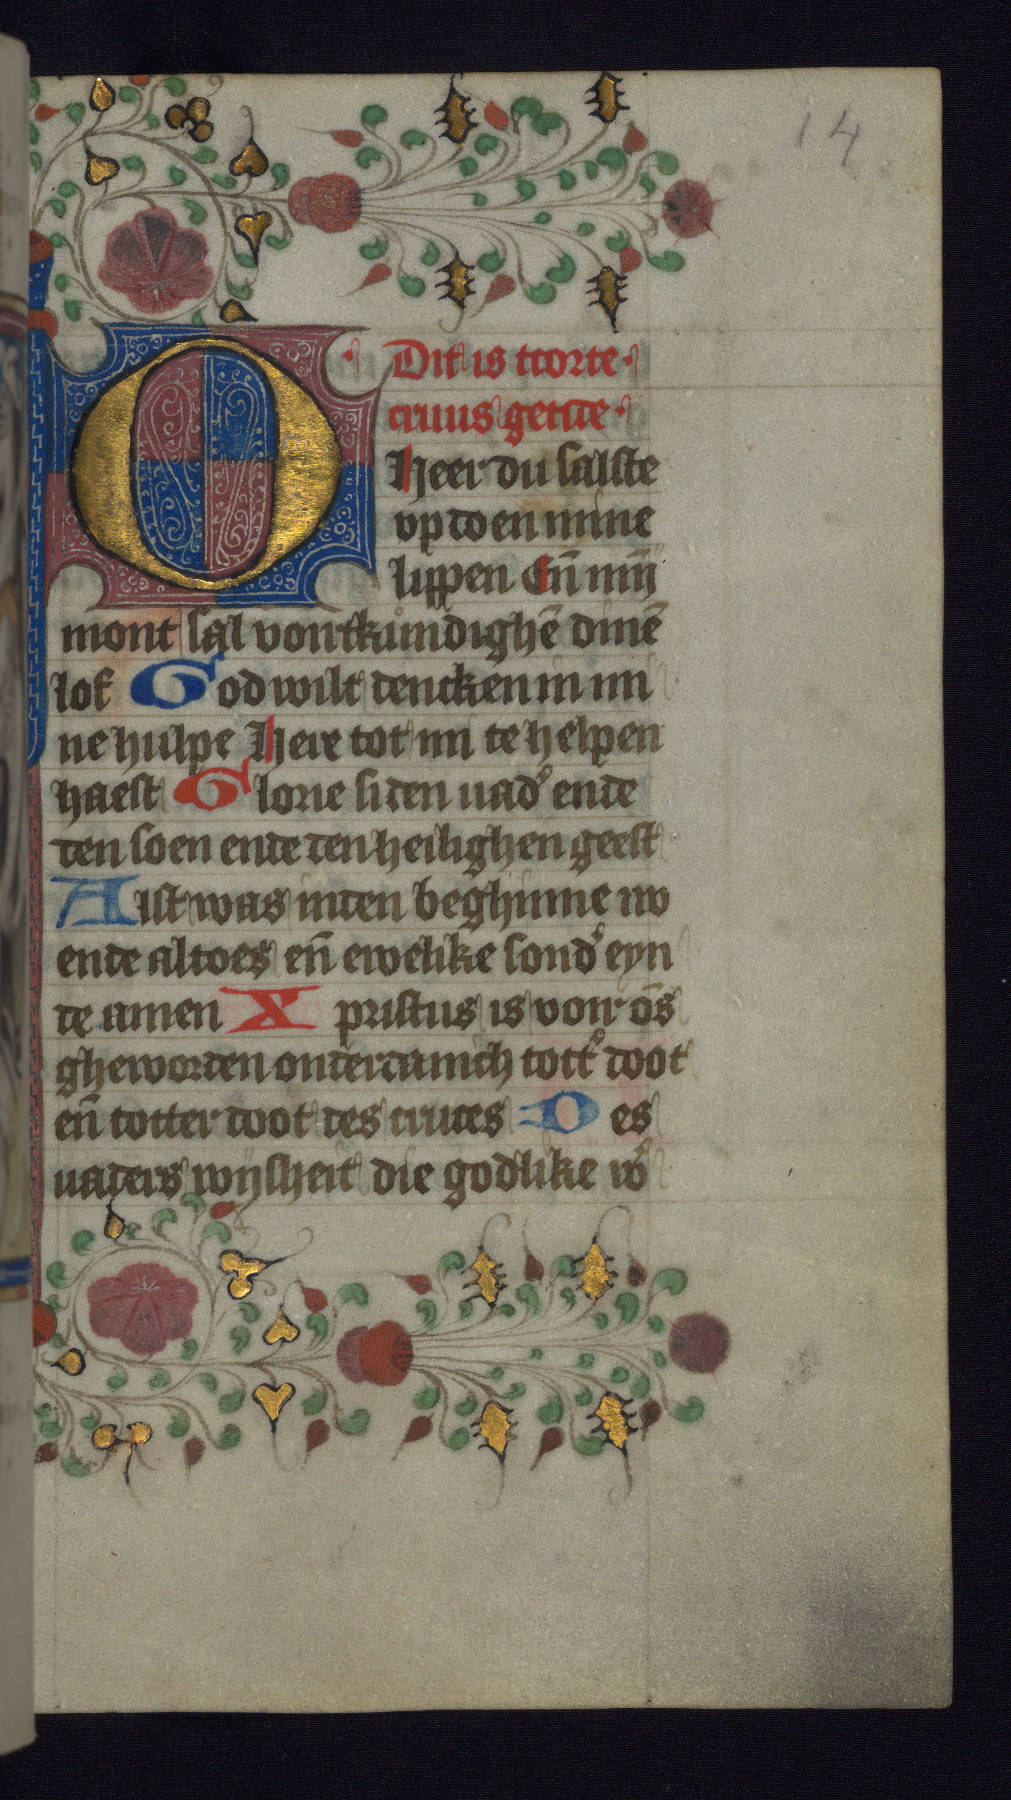 14
Dit is tcorte
cruus getide
O heer du salste
vp doen mine
lippen Eñ mın̄
mont sal vortkůndighē dinē
lof God wilt dencken in mi
ne hulpe Here tot mi te helpen
haest Glorie si den uad᾽ ende
den soen ende den heilighen geest
Alst was inden beghinne nv
ende altoes eñ ewelike sond᾽ eyn
de amen Xpristus is voir ōs
gheworden onderdanich tott᾽ doot
eñ totter doot des cruces Des
uaders wijsheit die godlike w᾽